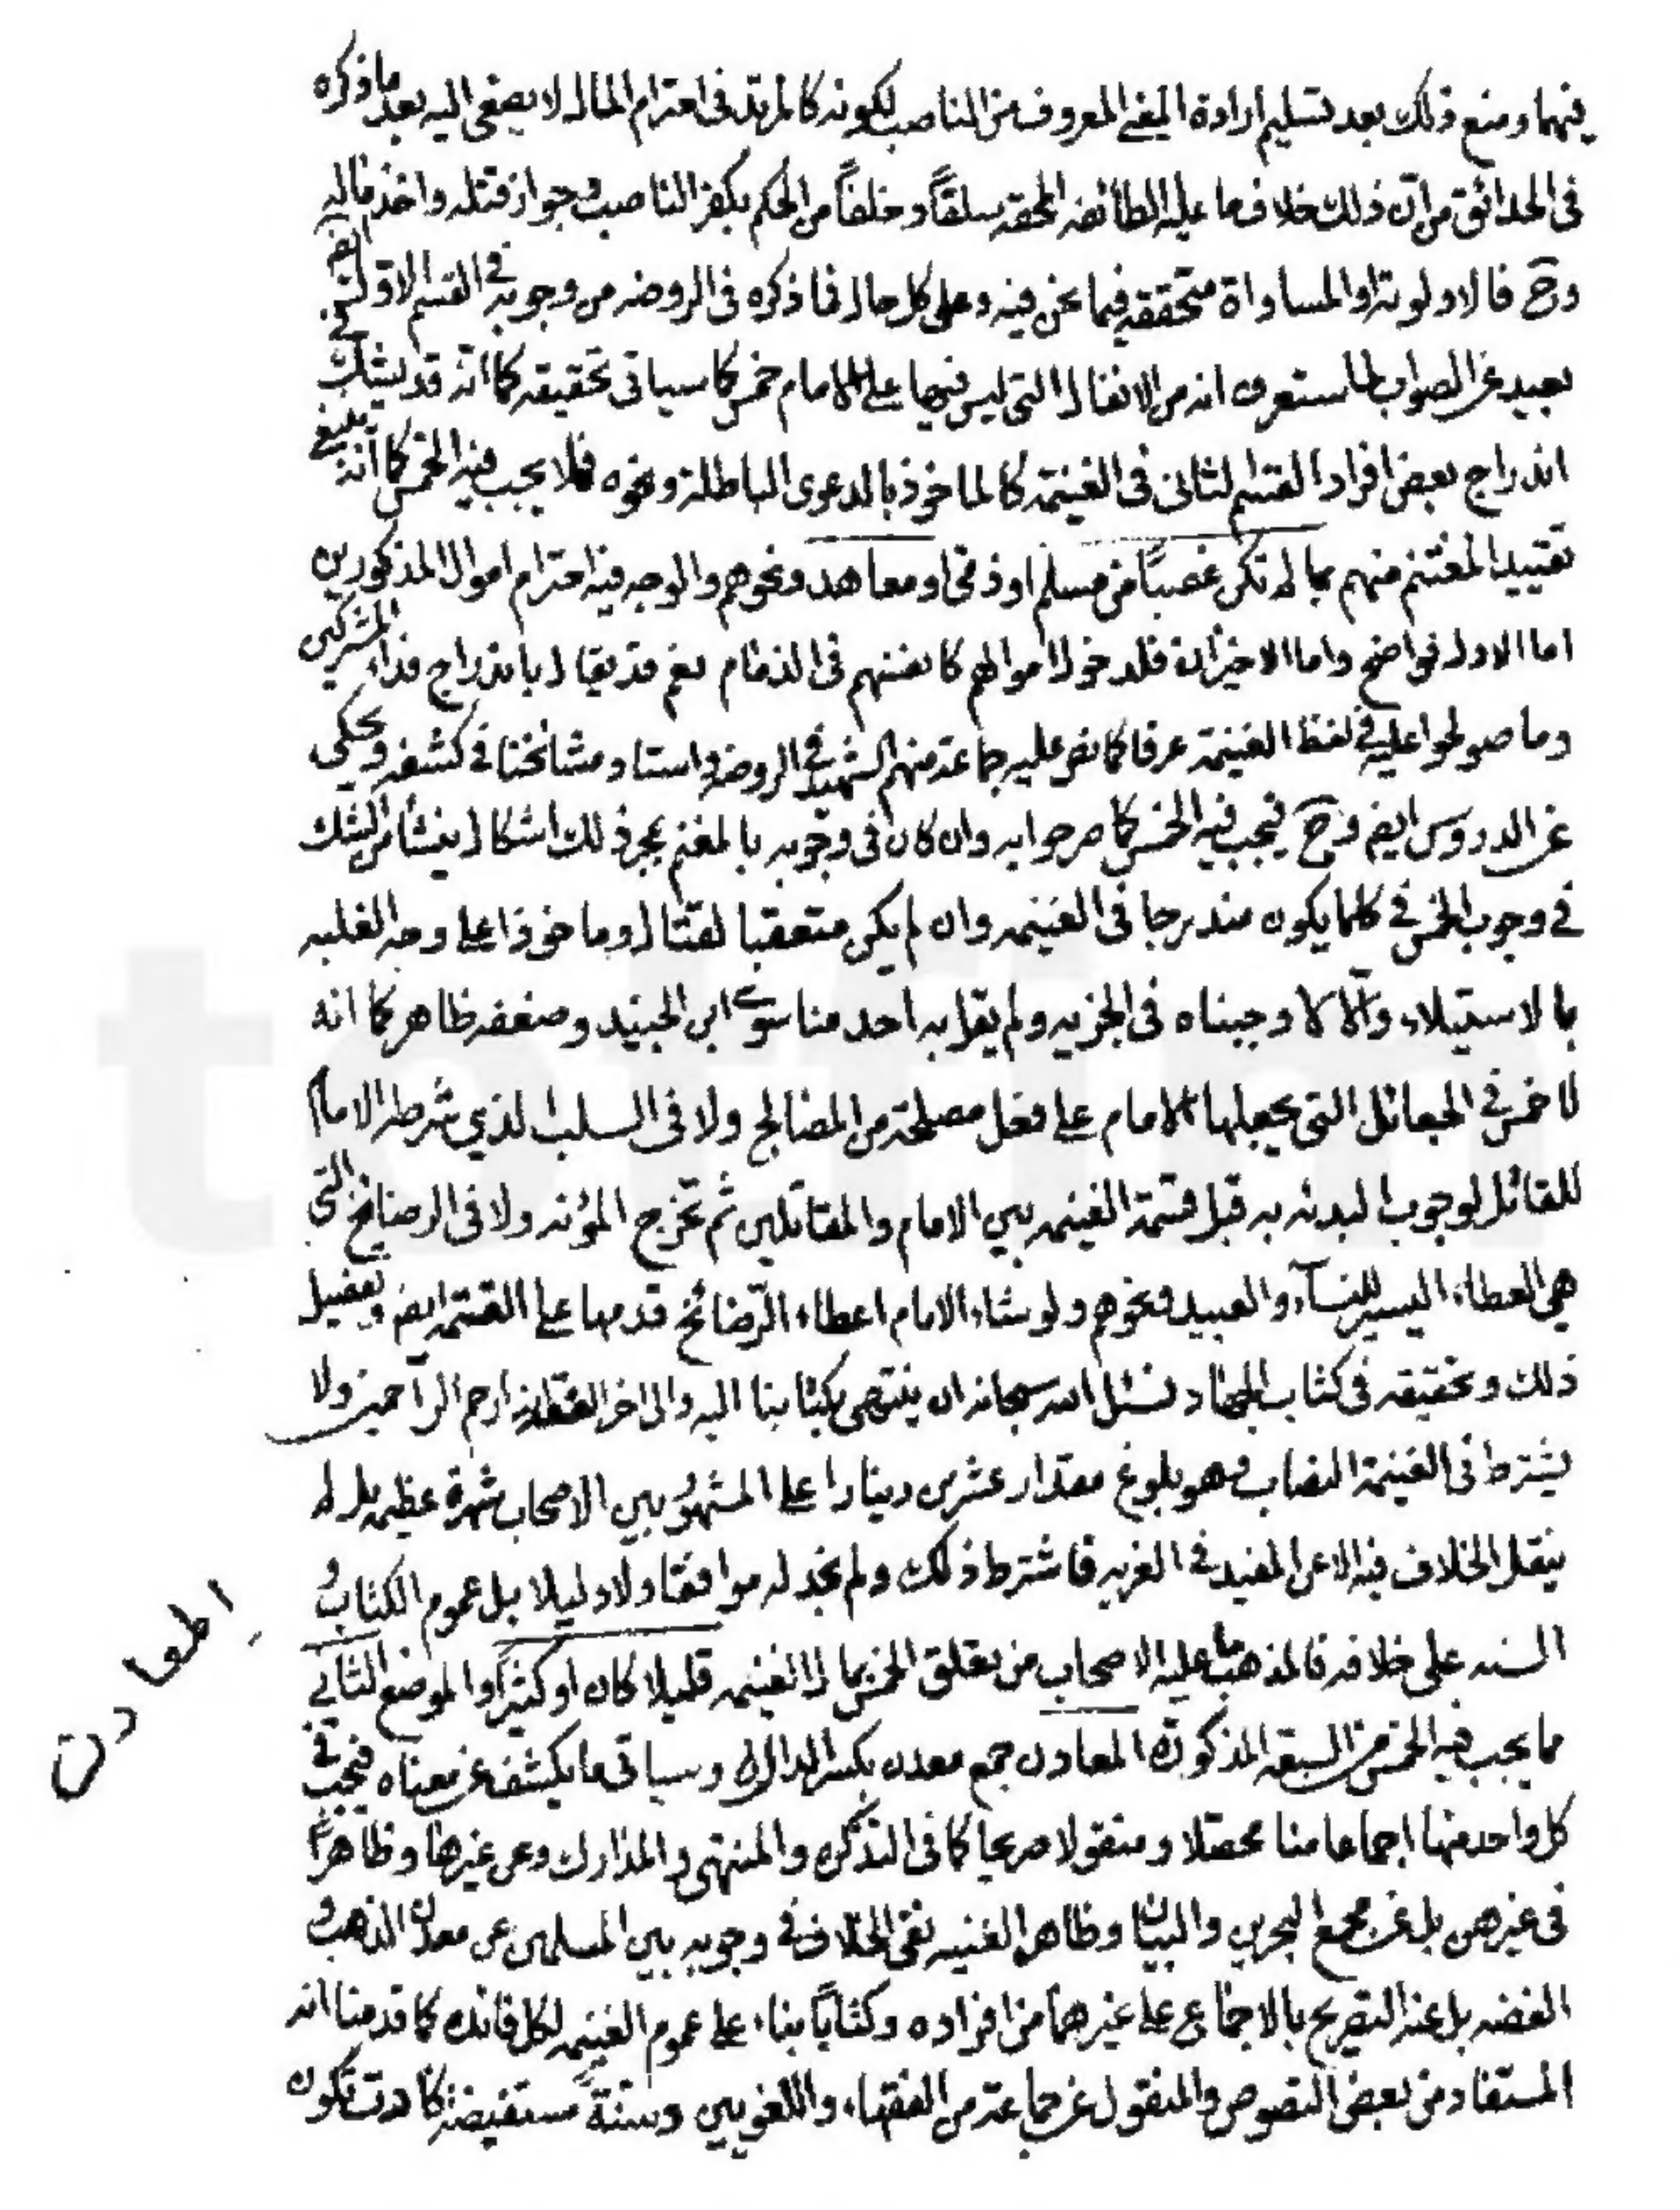 فيهما ومنع ذلك بعد تسليم ارادة المعنى المعروف من الناصب لكونه كالمرتد فى احترام المال لا يصغى اليه بعد ما ذكره
فى الحدائق من ان ذلك خلاف ما عليه الطائفه المحقه سلفاً وخلفاً من الحكم بكفر الناصب وجواز قتله واخذ ماله
وح فالاولوية او المساواة متحققه فيما نحن فيه وعلى كل حال فما ذكره فى الروضه من وجوبه فى القسم الاول
بعيد عن الصواب لما ستعرف انه من الانفال التى ليس فيها على الامام خمس كما سياتى تحقيقه كما انه قد يشك
اندراج بعض افراد القسم الثانى فى الغنيمة كالماخوذ بالدعوى الباطلة ونحوه فلا يجب فيه الخمس كما انه ينبغى
تقييد المغتنم منهم بما لم يكن غصباً من مسلم او ذمى او معاهد ونحوهم والوجه فيه احترام اموال المذكورين
اما الاول فواضح واما الاخيران فلدخول اموالهم كانفسهم فى الذمام نعم قد يقال باندراج فداء المشركين
وما صولحوا عليه فى لفظ الغنيمة عرفا كما نص عليه جماعة منهم الشهيد فى الروضة واستاد مشائخنا فى كشفه وحكى
عن الدروس ايضا وح فيجب فيه الخمس كما صرحوا به وان كان فى وجوبه بالمغنم بمجرد ذلك اشكال ينشا من الشك
فى وجوب الخمس فى كلما يكون مندرجا فى الغنيمه وان لم يكن متعقبا لقتال وماخوذا على وجه الغلبه
بالاستيلاء والا لاوجبناه فى الجزيه ولم يقل به احد منا سوى ابن الجنيد وضعفه ظاهر كما انه
لا خمس فى الجعائل التى يجعلها الامام على فعل مصلحة من المصالح ولا فى السلب الذي شرطه الامام
للقاتل لوجوب البدئه به قبل قسمة الغنيمه بين الامام والمقاتلين ثم تخرج المؤنه ولا فى الرضائخ التى
هى العطاء اليسير للنساء والعبيد ونحوهم ولو شاء الامام اعطاء الرّضائخ قدمها على القسمة ايضا وتفصيل
ذلك وتحقيقه فى كتاب الجهاد نسئل الله سبحانه ان ينتهى بكتابنا اليه والى اخر الفقه انه ارحم الراحمين ولا
يشترط فى الغنيمة النصاب وهو بلوغ مقدار عشرين دينارا على المشهور بين الاصحاب شهرة عظيمه بل لم
ينقل الخلاف فيه الا عن المفيد فى الغريه فاشترط ذلك ولم نجد له موافقا ولا دليلا بل عموم الكتاب و
السنه على خلافه فالمذهب ما عليه الاصحاب من تعلق الخمس بمال الغنيمه قليلا كان او كثيرا والموضع الثانى
مما يجب فيه الخمس من السبعة المذكورة المعادن جمع معدن بكسر الدال وسياتى ما يكشف عن معناه فيجب فى
كل واحد منها اجماعا منا محصلا ومنقولا صريحا كما فى التذكره والمنتهى والمدارك وعن غيرها وظاهراً
فى غيرهن بل عن مجمع البحرين والبيان وظاهر الغنيه نفى الخلاف فى وجوبه بين المسلمين عن معدن الذهب و
الفضه بل عنه التصريح بالاجماع على غيرهما من افراده وكتاباً بناء على عموم الغنيمه لكل فائده كما قدمنا انه
المستفاد من بعض النصوص والمنقول عن جماعة من الفقهاء واللغويين وسنةً مستفيضة كادت تكون
المعادن